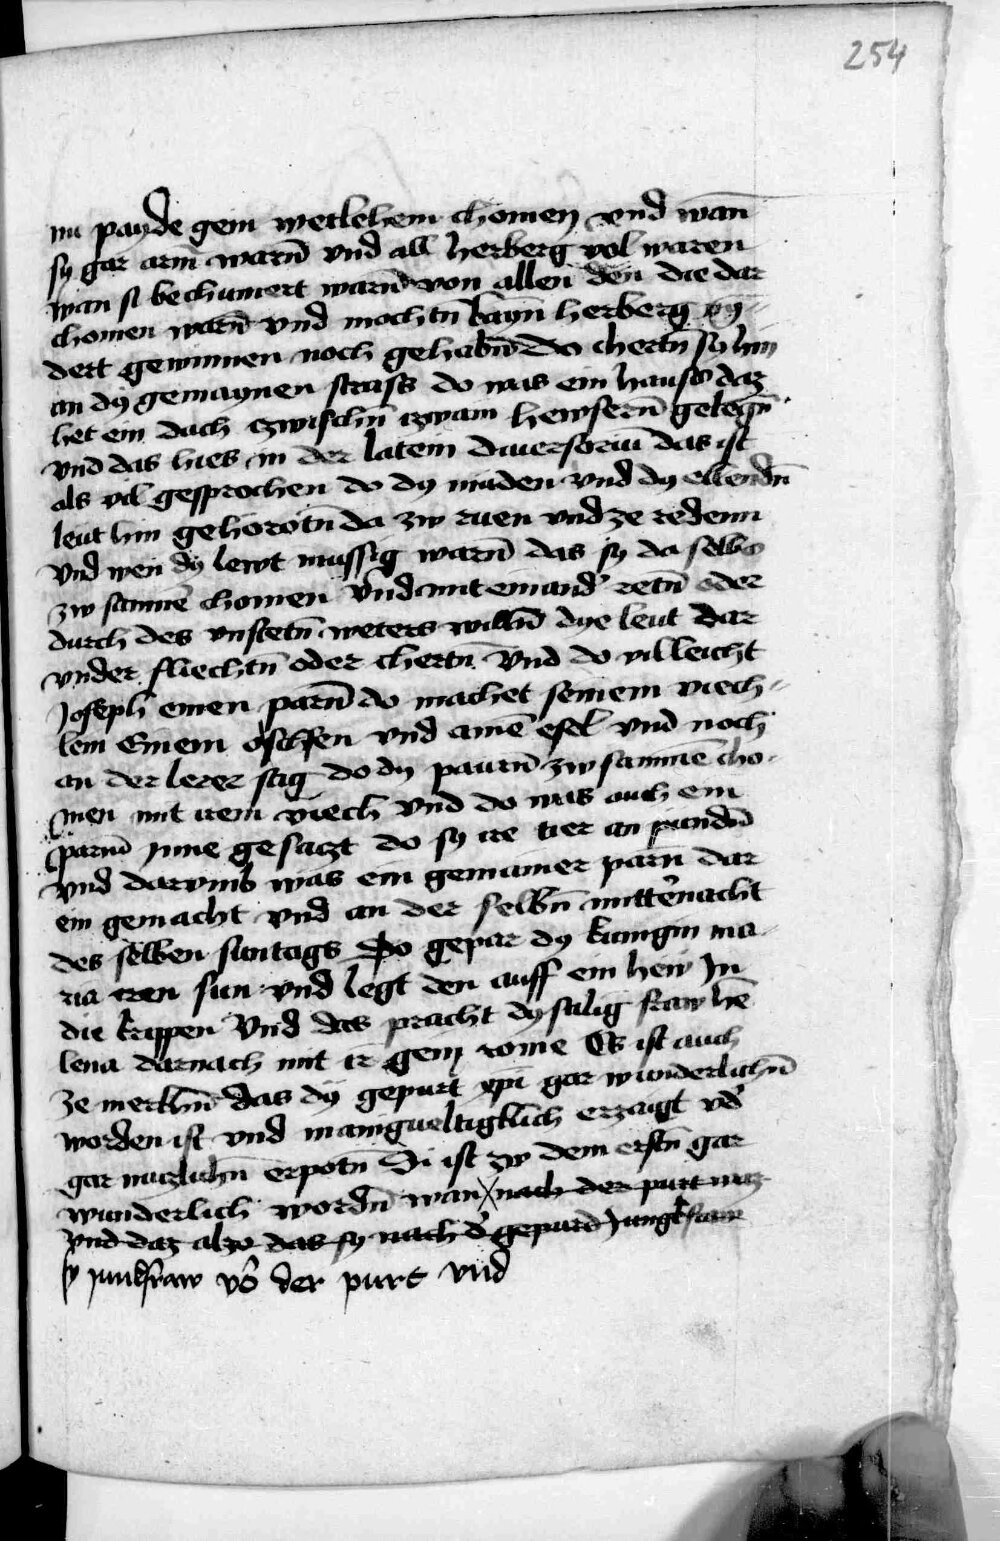 254
nu payde gein wetlehem chomen vnd wan̄
sy gar arm warn̄ vnd all herberg vol waren
wan si bechumert warn̄ von allen den die dar
chomen warn̄ vnd mochtn̄ kayn̄ herberg ny-
dert gewinnen noch gehabn̄ do chertn̄ sy hin
an dy gemaynen strass do was ein hauss daz
het ein dach zwischn̄ zwain hewsern̄ gelegn̄
vnd das hies in der latein diuersoriū das ist
als vil gesprochen do dy müden vnd dy ellendn̄
leut hin gehorotn̄ da zw ruen vnd ze redenn
vnd wen dy lewt mussig warn̄ das sy da selbs
zw samē chomen vnd mit einand' retn̄ oder
durch des vnstetn̄ weters willn̄ dye leut dar
vnder fliechtn̄ oder chertn̄ vnd do villeicht
Joseph einen parn̄ do machet seinem viech-
lein Einem ochsen vnd ainē esel vnd noch
an der lerer stig do dy pawrn̄ zw sammē cho-
men mit irem viech vnd do was auch ein
parn̄ jnne gesaczt do sy ire tier an pundn̄
vnd darvmb was ein gemainer parn̄ dar
ein gemacht vnd an der selbn̄ mitternacht
des selben suntags Do gepar dy kunigin ma-
ria iren sun vnd legt den auff ein hew In
die krippen Vnd das pracht dy salig fraw he-
lena darnach mit ir gen rome Es ist auch
ze merkn̄ das dy gepurt xpi gar wunderlichn̄
worden ist vnd manigueltigklich erzaigt vn̄d
gar nuczlichn̄ erpotn̄ Si ist zw dem erstn̄ gar
wunderlich wordn̄ wan nach der purt waz
vnd daz also das sy nach d' gepurd Jungkfraw
sy junkfraw vō der purt vnd